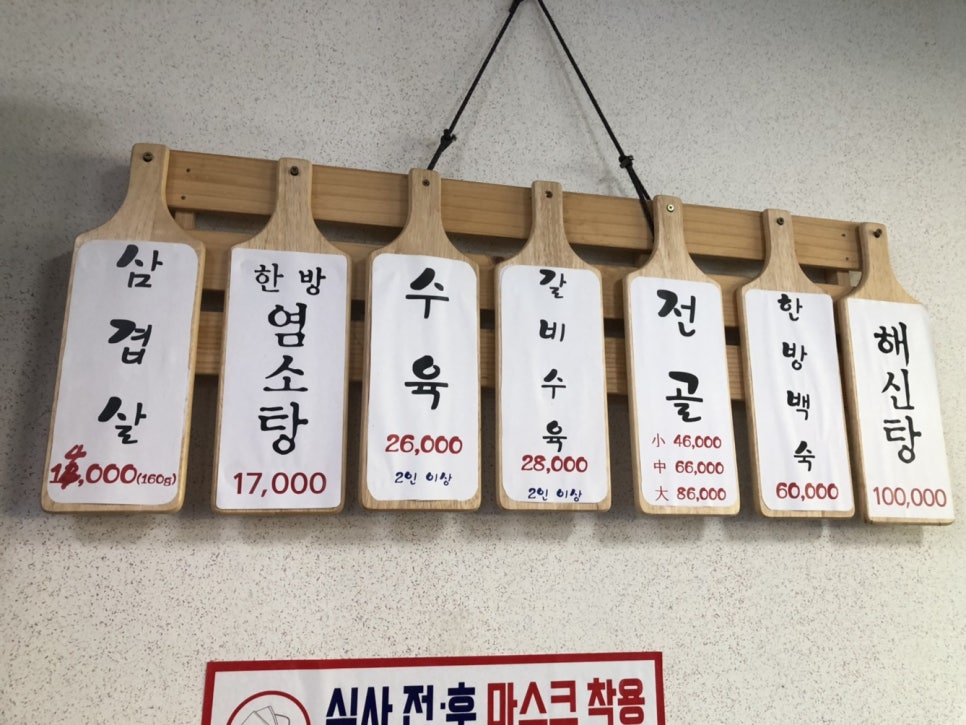 삼겹살
14,000(160g)
한방
염소탕
17,000
수육
26,000
2인 이상
갈비수육
28,000
2인 이상
전골
小 46,000
中 66,000
大 86,000
한방백숙
60,000
해신탕
100,000
식사 전·후 마스크 착용